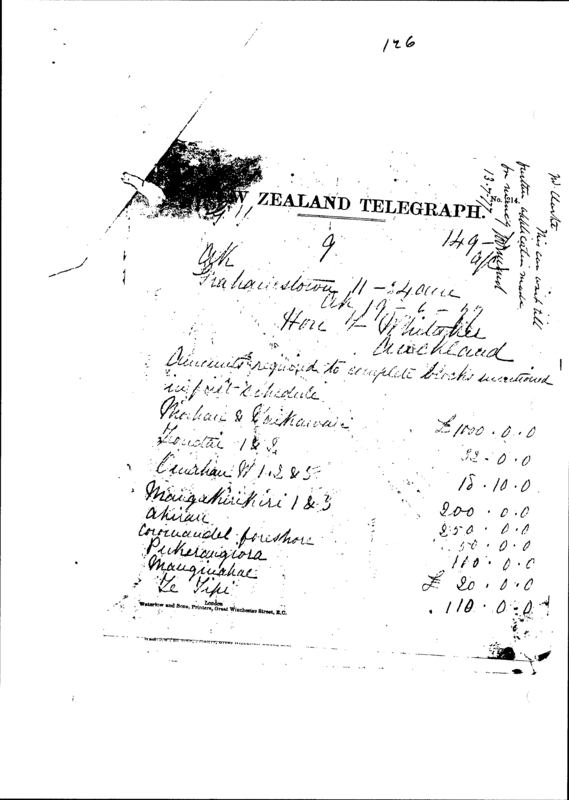 126
W ZEALAND TELEGRAPH.
Mr Clarke
This can wait till
further application made
for money
13-7-77
9
149-
Ak
Grahamstown 11-34am
Ak 19-6-77
Hon F Whitaker
Auckland
Amounts required to complete blocks mentioned
in first schedule
Moehau & Waikawau £1000.0.0
1 & 2 32.0.0
W 1.2 & 5 18.10.0
Maungakirikiri 1 & 3 200.0.0
250.0.0
Coromandel foreshore 50.0.0
Pukerangiora 110.0.0
£ 20.0.0
Te Tipi 110.0.0
London
Waterlow and Sons, Printers, Great Winchester Street, E.C.